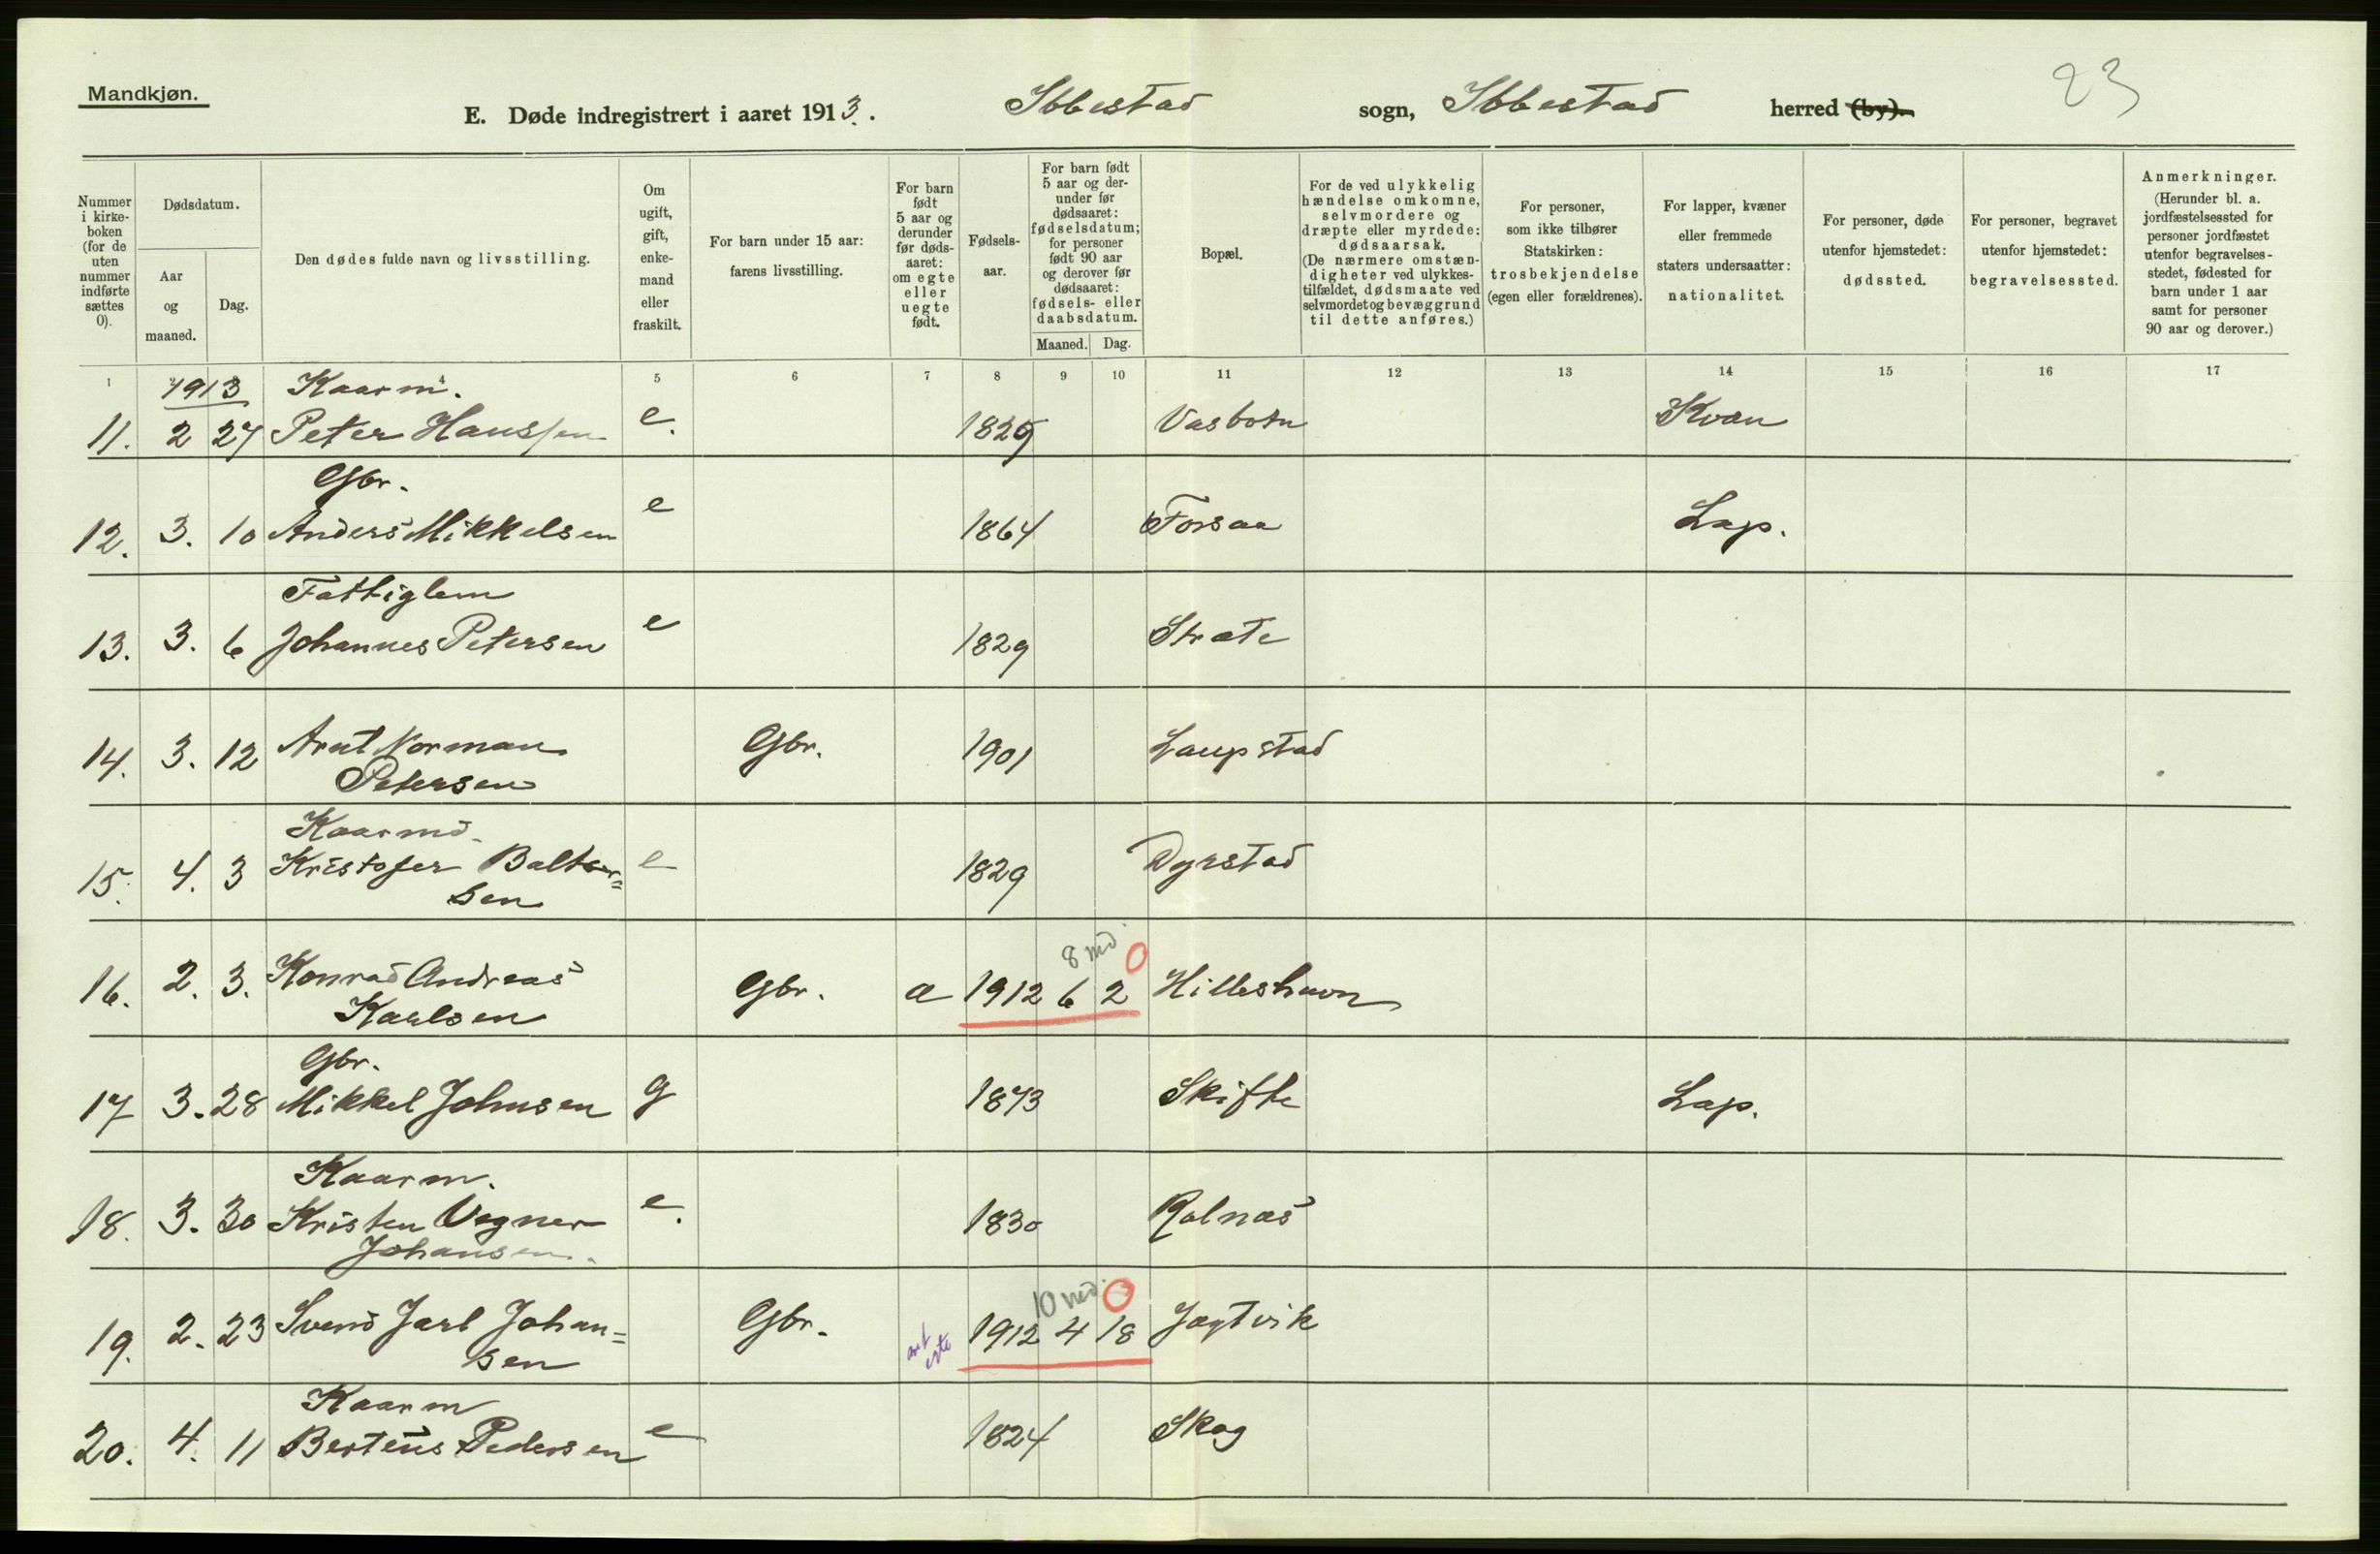 Mandkjøn.
E. Døde indregistrert i aaret 1913. Ibbestad sogn, Ibbestad herred (by).
23
Nummer i kirke-boken (for de uten nummer indførte sættes 0).
Dødsdatum.
Aar og maaned.
Dag.
Den dødes fulde navn og livsstilling.
Om ugift, gift, enke-mand eller fraskilt.
For barn under 15 aar: farens livsstilling.
For barn født 5 aar og derunder før døds-aaret: om egte eller uegte født.
Fødsels-aar.
For barn født 5 aar og der-under før dødsaaret: fødselsdatum; for personer født 90 aar og derover før dødsaaret: fødsels- eller daabsdatum.
Maaned. Dag.
Bopæl.
For de ved ulykkelig hændelse omkomne, selvmordere og dræpte eller myrdede: dødsaarsak. (De nærmere omstæn-digheter ved ulykkes-tilfældet, dødsmaate ved selvmordet og bevæggrund til dette anføres.)
For personer, som ikke tilhører Statskirken: trosbekjendelse (egen eller forældrenes).
For lapper, kvæner eller fremmede staters undersaatter: nationalitet.
For personer, døde utenfor hjemstedet: dødssted.
For personer, begravet utenfor hjemstedet: begravelsessted.
Anmerkninger. (Herunder bl. a. jordfæstelsessted for personer jordfæstet utenfor begravelses-stedet, fødested for barn under 1 aar samt for personer 90 aar og derover.)
1 4 5 6 7 8 9 10 11 12 13 14 15 16 17
1913 Kaarm.
11. 2 27 Peter Hanssen e. 1829 Vasbotn Kvæn
Gbr.
12. 3. 10 Anders Mikkelsen e 1864 Forsaa Lap.
Fattiglem
13. 3. 6 Johannes Petersen e 1829 Stræte
14. 3. 12 Arnt Norman Gbr. 1901 Laupstad
Petersen
Kaarmd.
15. 4. 3 Kristofer Balter= e 1829 Dyrstad
sen
8 md. 0
16. 2. 3. Konrad Andreas Gbr. a 1912 6 2 Hilleshavn
Karlsen
Gbr.
17 3. 28 Mikkel Johnsen g 1873 Skifte Lap.
Kaarm.
18. 3. 30 Kristen Vegner e. 1830 Rolnæs
Johansen.
10 md. 0
19. 2. 23 Svend Jarl Johan= Gbr. egte 1912 4 18 Jagtvik
sen
Kaarm
20. 4. 11 Berteus Pedersen e 1824 Skog